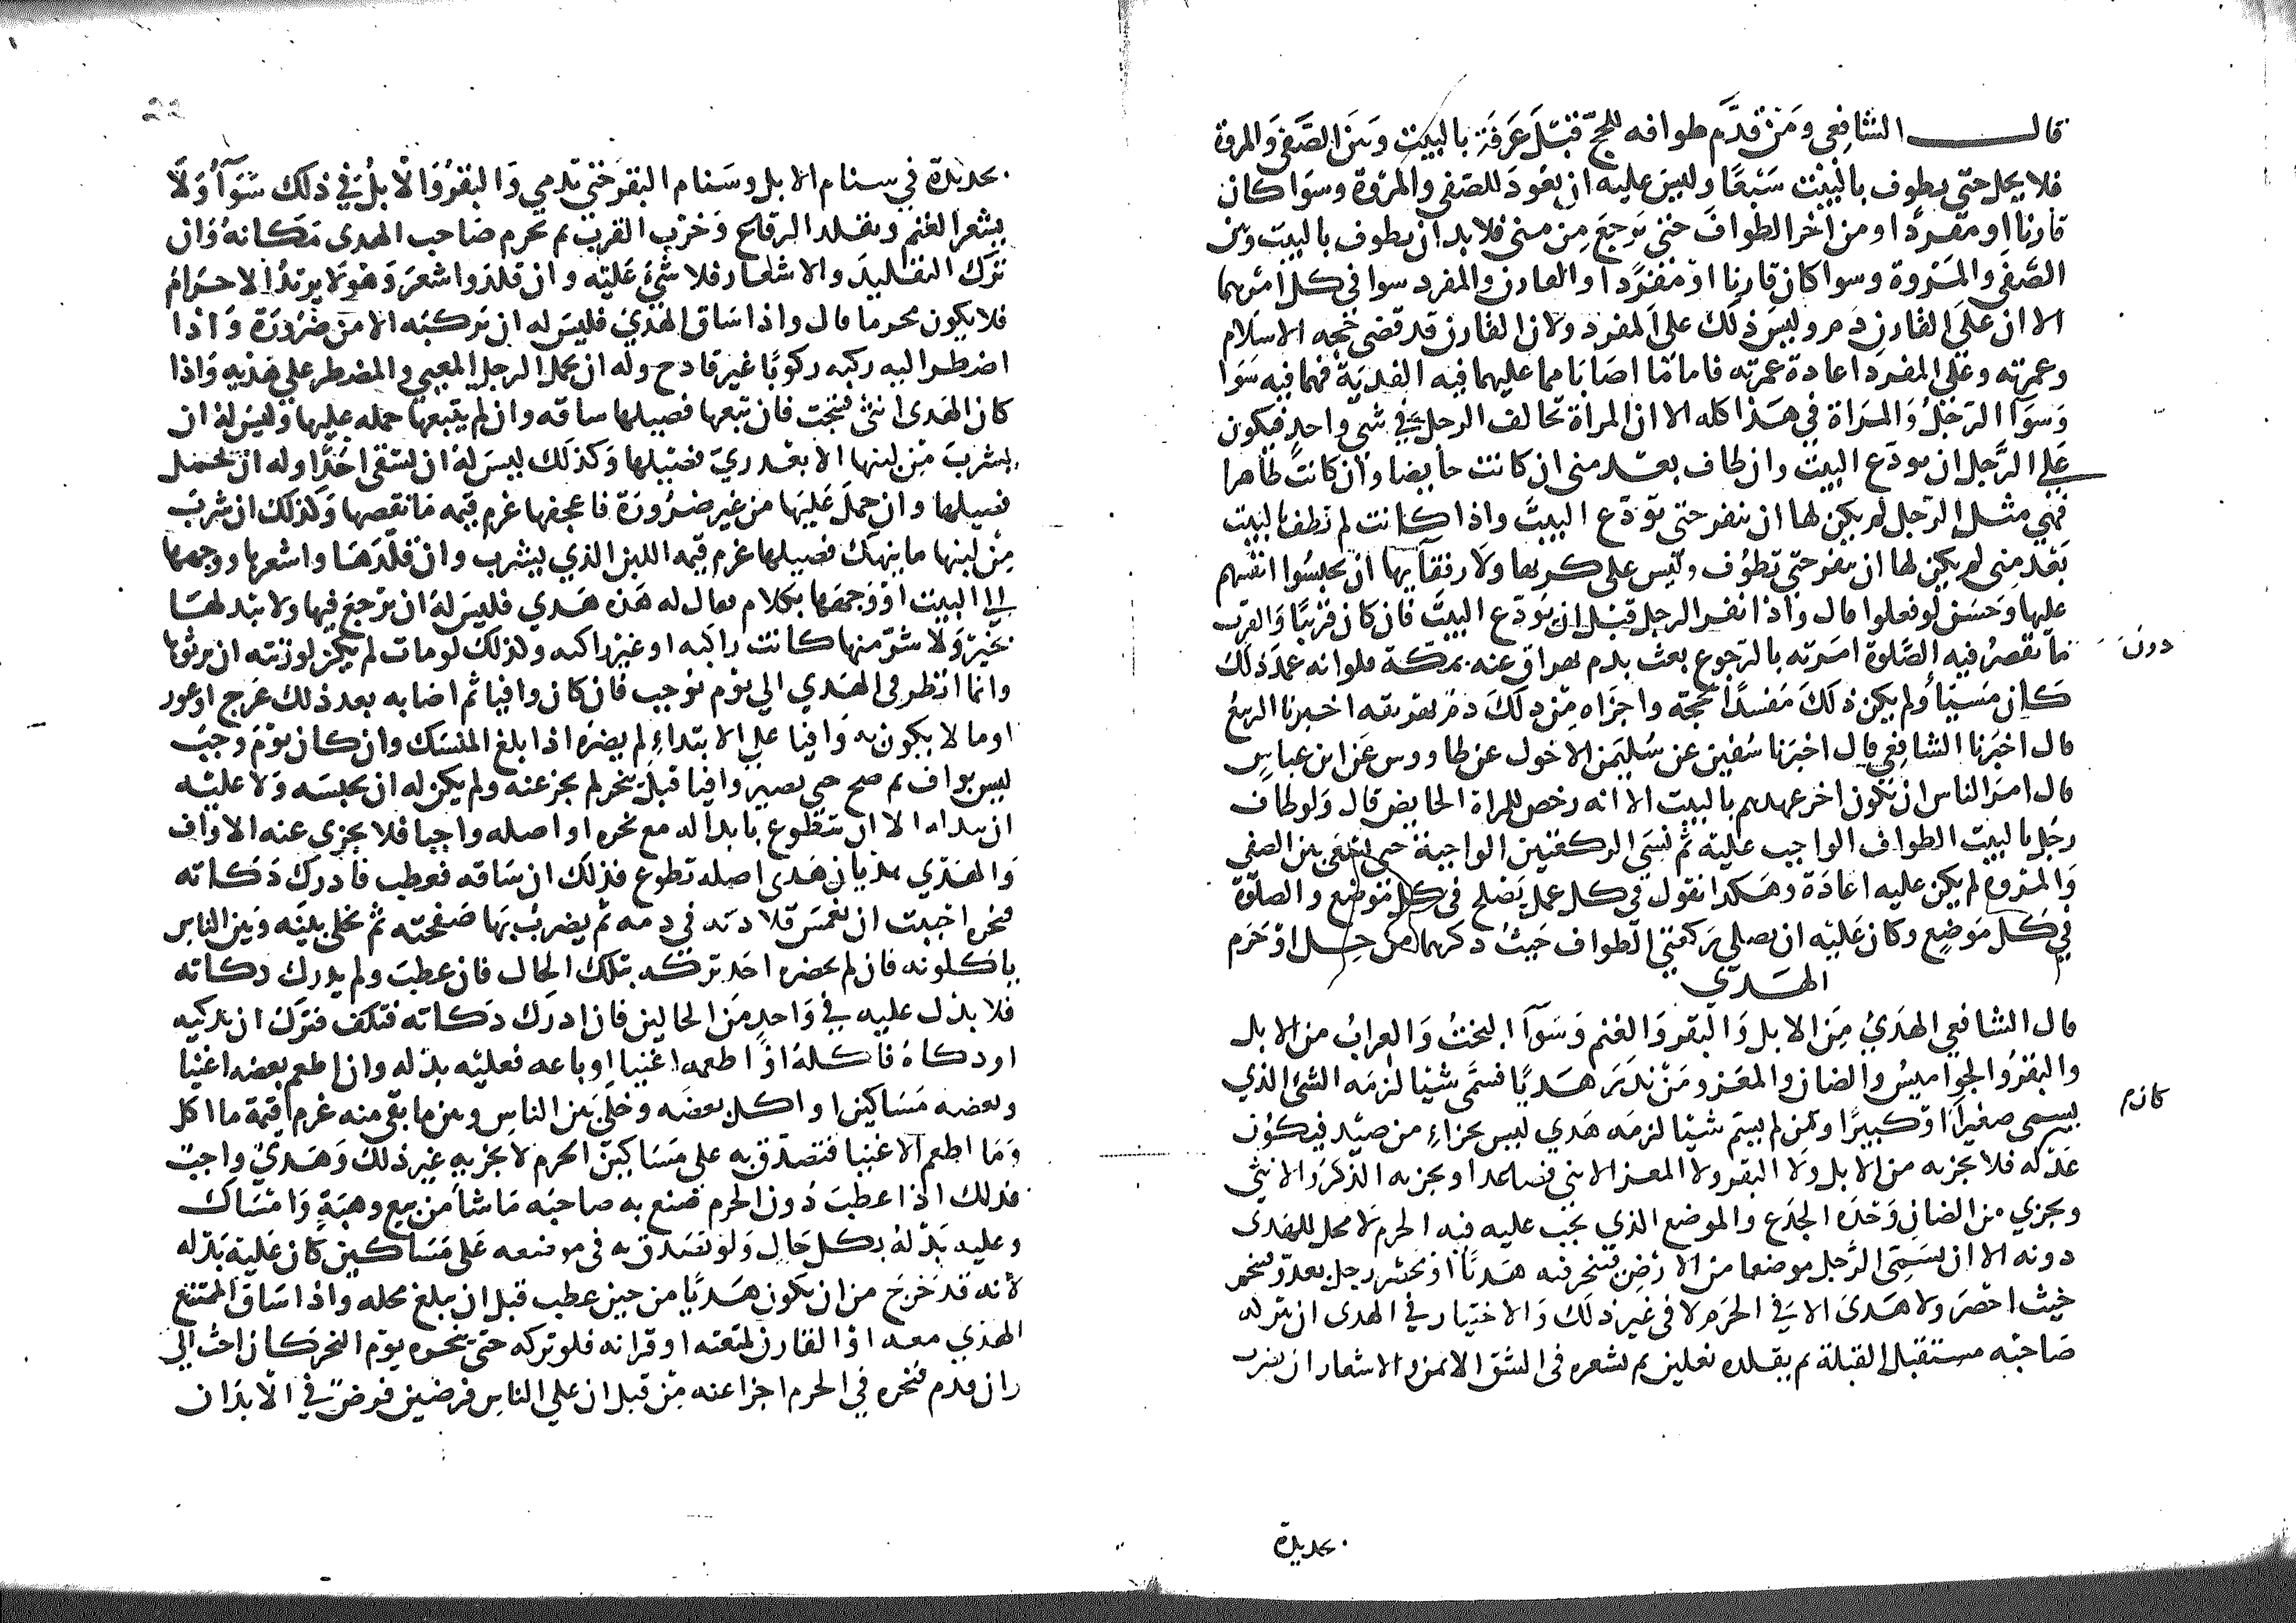 قالـــــــ الشافعي ومن قدم طوافه للحج قبل عرفة بالبيت وبين الصفى والمروة
فلا يحل حتى يطوف بالبيت سبعا وليس عليه ان يعود للصفى والمروة وسوا كان
قارنا او مفردا ومن اخر الطواف حتى يرجع من منى فلا بد ان يطوف بالبيت وبين
الصفى والمروة وسوا كان قارنا او مفردا والقارن والمفرد سوا في كل امرهما
الا ان على القارن دم وليس ذلك على المفرد ولان القارن قد قضى حجه الاسلام
وعمرته وعلى المفرد اعادة عمرته فاما ما اصابا مما عليهما فيه الفدية فهما فيه سوا
وسوآ الرجل والمراة في هذا كله الا ان المراة تخالف الرجل في شي واحد فيكون
على الرجل ان يودع البيت وان طاف بعد منى ان كانت حايضا وان كانت طاهرا
فهي مثل الرجل لم يكن لها ان ينفر حتى تودع البيت واذا كانت لم تطف بالبيت
بعد منى لم يكن لها ان ينفر حتى تطوف وليس على كريها ولا رفقآيها ان يحبسوا انفسهم
عليها وحسن لو فعلوا قال واذا نفر الرجل قبل ان يودع البيت فان كان قريبا والقرب
دون ما تقصر فيه الصلوة امرته بالرجوع بعث بدم يهراق عنه بمكة فلو انه عمد ذلك
كان مسيئا ولم يكن ذلك مفسدا لحجه واجزاه من ذلك دم يهريقه اخبرنا الربيع
قال اخبرنا الشافعي قال اخبرنا سفين عن سليمن الاحول عن طاووس عن ابن عباس
قال امر الناس ان يكون اخر عهدهم بالبيت الا انه رخص للمراة الحايض قال ولو طاف
رجل بالبيت الطواف الواجب عليه ثم نسي الركعتين الواجبة حتى يسعى بين الصفى
والمروه لم يكن عليه اعادة وهكذا نقول في كل عمل يصلح في كل موضع والصلوة
في كل موضع وكان عليه ان يصلي ركعتي الطواف حيث ذكرهما من حل او حرم
الهـــدي
قال الشافعي الهدي من الابل والبقر والغنم وسوآ البخت والعراب من الابل
والبقر والجواميس والضان والمعز ومن نذر هديا فسمى شيئا لزمه الشئ الذي
يسمى صغيرا كان او كبيرا ومن لم يسم شيئا لزمه هدي ليس بجزاء من صيد فيكون
عدله فلا يجزيه من الابل ولا البقر ولا المعز الا ثني فصاعدا ويجزيه الذكر والانثى
ويجزي من الضان وحده الجذع والموضع الذي يجب عليه فيه الحرم لا محل للهدى
دونه الا ان يسمى الرجل موضعا من الارض فينحر فيه هديا او يحصر رجل بعدو فينحر
حيث احصر ولا هدى الا في الحرم لا في غير ذلك والاختيار في الهدى ان يتركه
صاحبه مستقبل القبلة ثم يقلده نعلين ثم يشعره في الشق الايمن والاشعار ان يضرب
بحديدة
بحديدة في سنام الابل وسنام البقر حتى تدمي والبقر والابل في ذلك سوآ ولا
يشعر الغنم ويقلد الرقاع وخرب القرب ثم يحرم صاحب الهدى مكانه وان
ترك التقليد والاشعار فلا شئ عليه وان قلد واشعر وهو لا يريد الاحرام
فلا يكون محرما قال واذا ساق الهدي فليس له ان يركبه الا من ضرورة واذا
اضطر اليه ركبه ركوبا غير فادح وله ان يحمل الرجل المعيي والمضطر على هديه واذا
كان الهدى انثى فنتجت فان تبعها فصيلها ساقه وان لم يتبعها حمله عليها وليس له ان
يشرب من لبنها الا بعد ري فصيلها وكذلك ليس له ان يسقى احدا وله ان يحمل
فصيلها وان حمل عليها من غير ضرورة فاعجفها غرم قيمه ما نقصها وكذلك ان شرب
من لبنها ما ينهك فصيلها غرم قيمه اللبن الذي يشرب وان قلدها واشعرها ووجهها
الى البيت او وجهها بكلام فقال له هذه هدي فليس له ان يرجع فيها ولا يبدلها
بخير ولا شر منها كانت زاكيه او غير زاكيه وكذلك لو مات لم يكن لورثته ان يرثوها
وانما انظر في الهدي الى يوم يوجب فان كان وافيا ثم اصابه بعد ذلك عرج او عور
او ما لا يكون به وافيا على الابتداء لم يضره اذا بلغ المنسك وان كان يوم وجب
ليس بواف ثم صح حتى يصير وافيا قبل ينحر لم يجز عنه ولم يكن له ان يحبسه ولا عليه
ان يبدله الا ان يتطوع بابداله مع نحره او اصله واجبا فلا يجزى عنه الا واف
والهدي هديان هدى اصله تطوع فذلك ان ساقه فعطب فادرك ذكاته
فنحره احببت ان يغمس قلادته في دمه ثم يضرب بها صفحته ثم يخلى بينه وبين الناس
ياكلونه فان لم يحضره احد تركه بتلك الحال فان عطب ولم يدرك ذكاته
فلا بدل عليه في واحد من الحالين فان ادرك ذكاته فترك ان يذكيه
او ذكاه فاكله او اطعمه اغنيا او باعه فعليه بدله وان اطعم بعضه اغنيا
وبعضه مساكين او اكل بعضه وخلى بين الناس وبين ما بقى منه غرم قيمة ما اكل
وما اطعم الاغنيا فتصدق به على مساكين الحرم لا يجزيه غير ذلك وهدي واجب
فذلك اذا عطب دون الحرم صنع به صاحبه ما شا من بيع وهبة وامساك
وعليه بدله بكل حال ولو تصدق به في موضعه على مساكين كان عليه بدله
لانه قد خرج من ان يكون هديا من حين عطب قبل ان يبلغ محله واذا ساق المتمتع
الهدي معه او القارن لمتعته او قرانه فلو تركه حتى ينحره يوم النحر كان احب الي
وان قدم فنحره في الحرم اجزا عنه من قبل ان على الناس فرضين فرض في الابدان